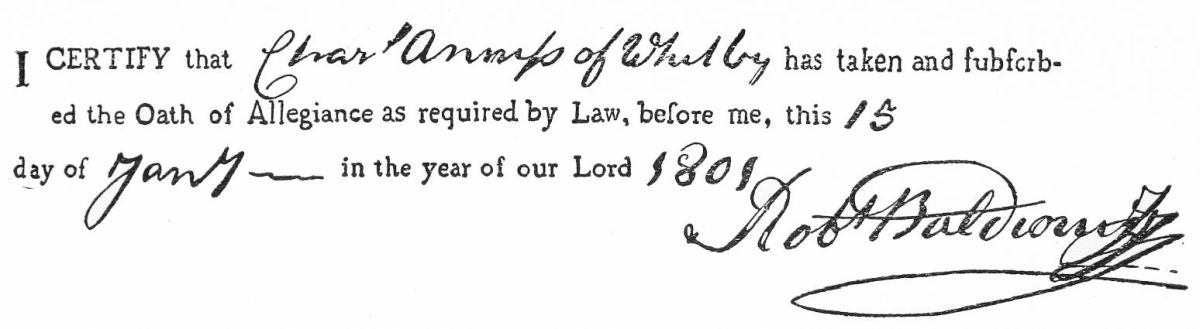 I CERTIFY that Charˢ Anniſs of Whitby has taken and ſubſcrb-
ed the Oath of Allegiance as required by Law, before me, this 15
day of Janʸ — in the year of our Lord 1801
Robᵗ Baldwin